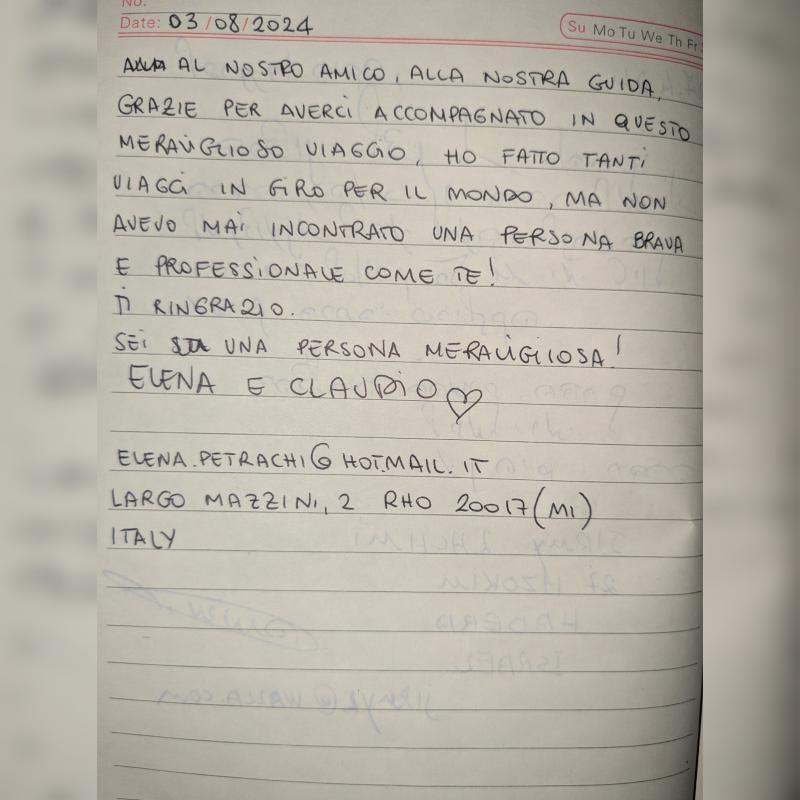 No.
Date: 03/08/2024
Su Mo Tu We Th Fr
AL NOSTRO AMICO, ALLA NOSTRA GUIDA,
GRAZIE PER AVERCI ACCOMPAGNATO IN QUESTO
MERAVIGLIOSO VIAGGIO, HO FATTO TANTI
VIAGGI IN GIRO PER IL MONDO, MA NON
AVEVO MAI INCONTRATO UNA PERSONA BRAVA
E PROFESSIONALE COME TE!
TI RINGRAZIO.
SEI UNA PERSONA MERAVIGLIOSA!
ELENA E CLAUDIO
ELENA.PETRACHI@HOTMAIL.IT
LARGO MAZZINI, 2 RHO 20017 (MI)
ITALY